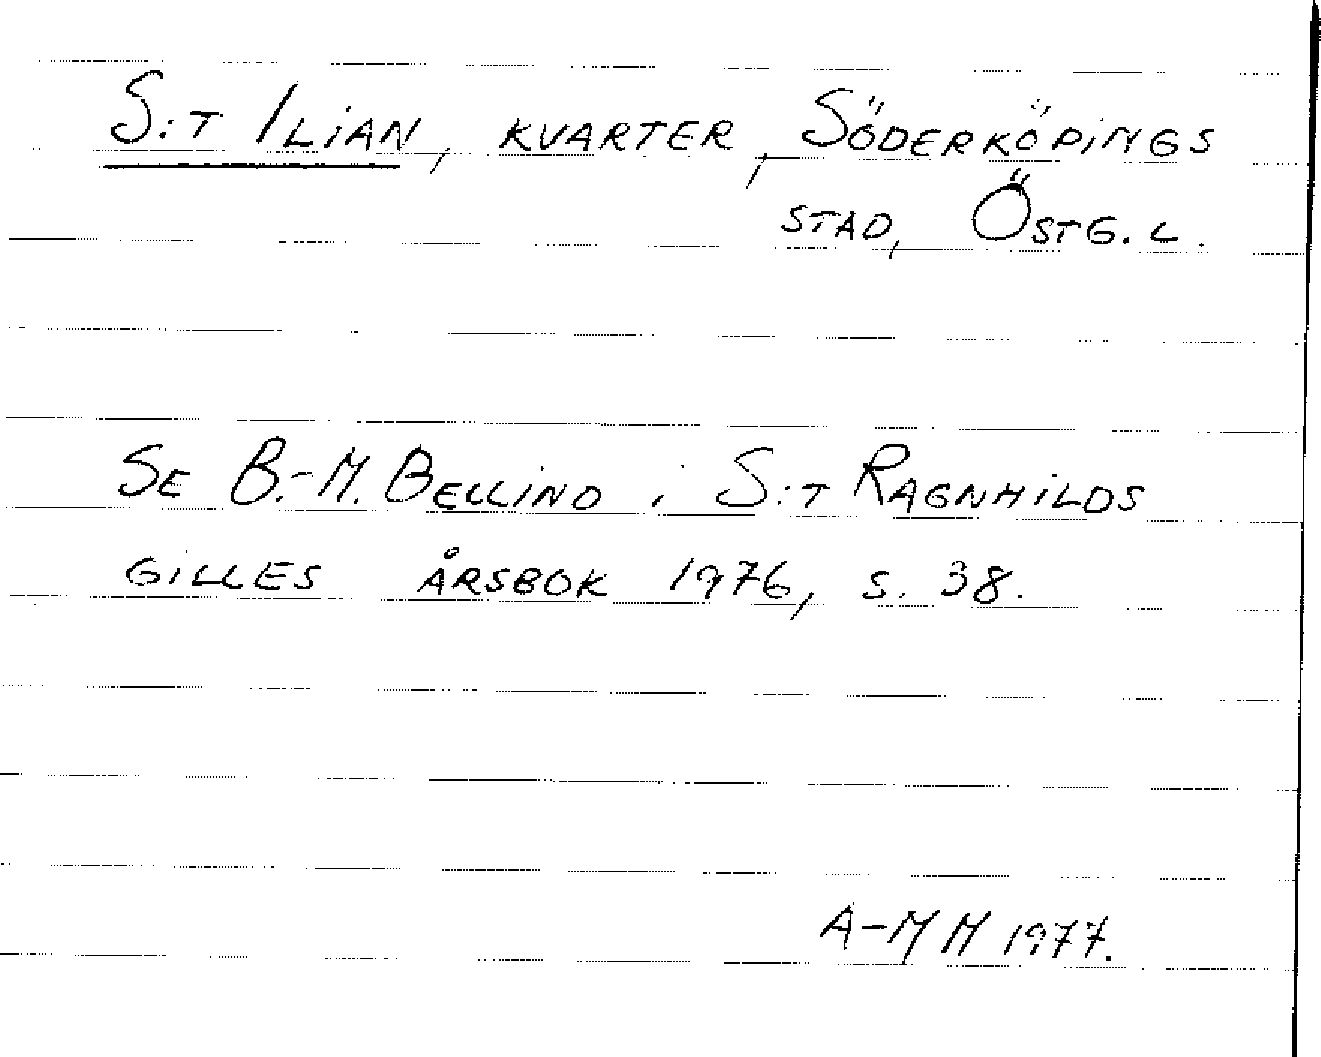 S:t Ilian, kvarter, Söderköpings
stad, Östg. l.
Se B.-M. Bellind i S:t Ragnhilds
gilles årsbok 1976, s. 38.
A-MH 1977.